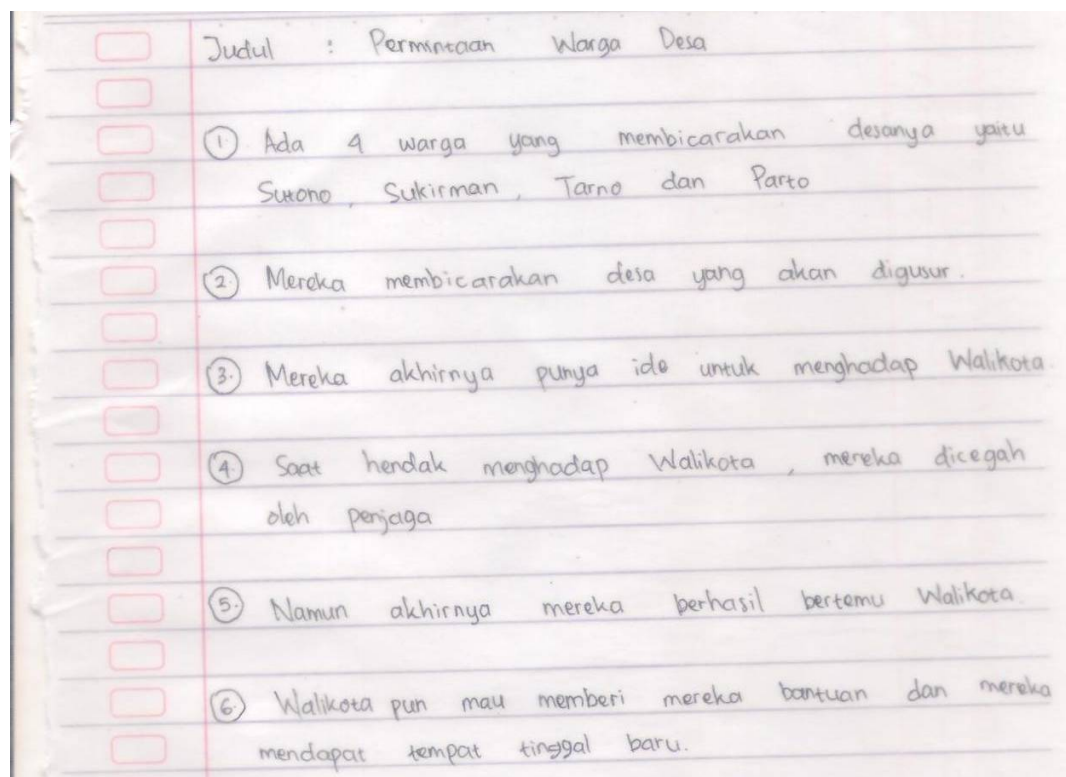 Judul : Permintaan Warga Desa
① Ada 4 warga yang membicarakan desanya yaitu
Sutono, Sukirman, Tarno dan Parto
②. Mereka membicarakan desa yang akan digusur.
③. Mereka akhirnya punya ide untuk menghadap Walikota.
④. Saat hendak menghadap Walikota, mereka dicegah
oleh penjaga
⑤. Namun akhirnya mereka berhasil bertemu Walikota.
⑥. Walikota pun mau memberi mereka bantuan dan mereka
mendapat tempat tinggal baru.